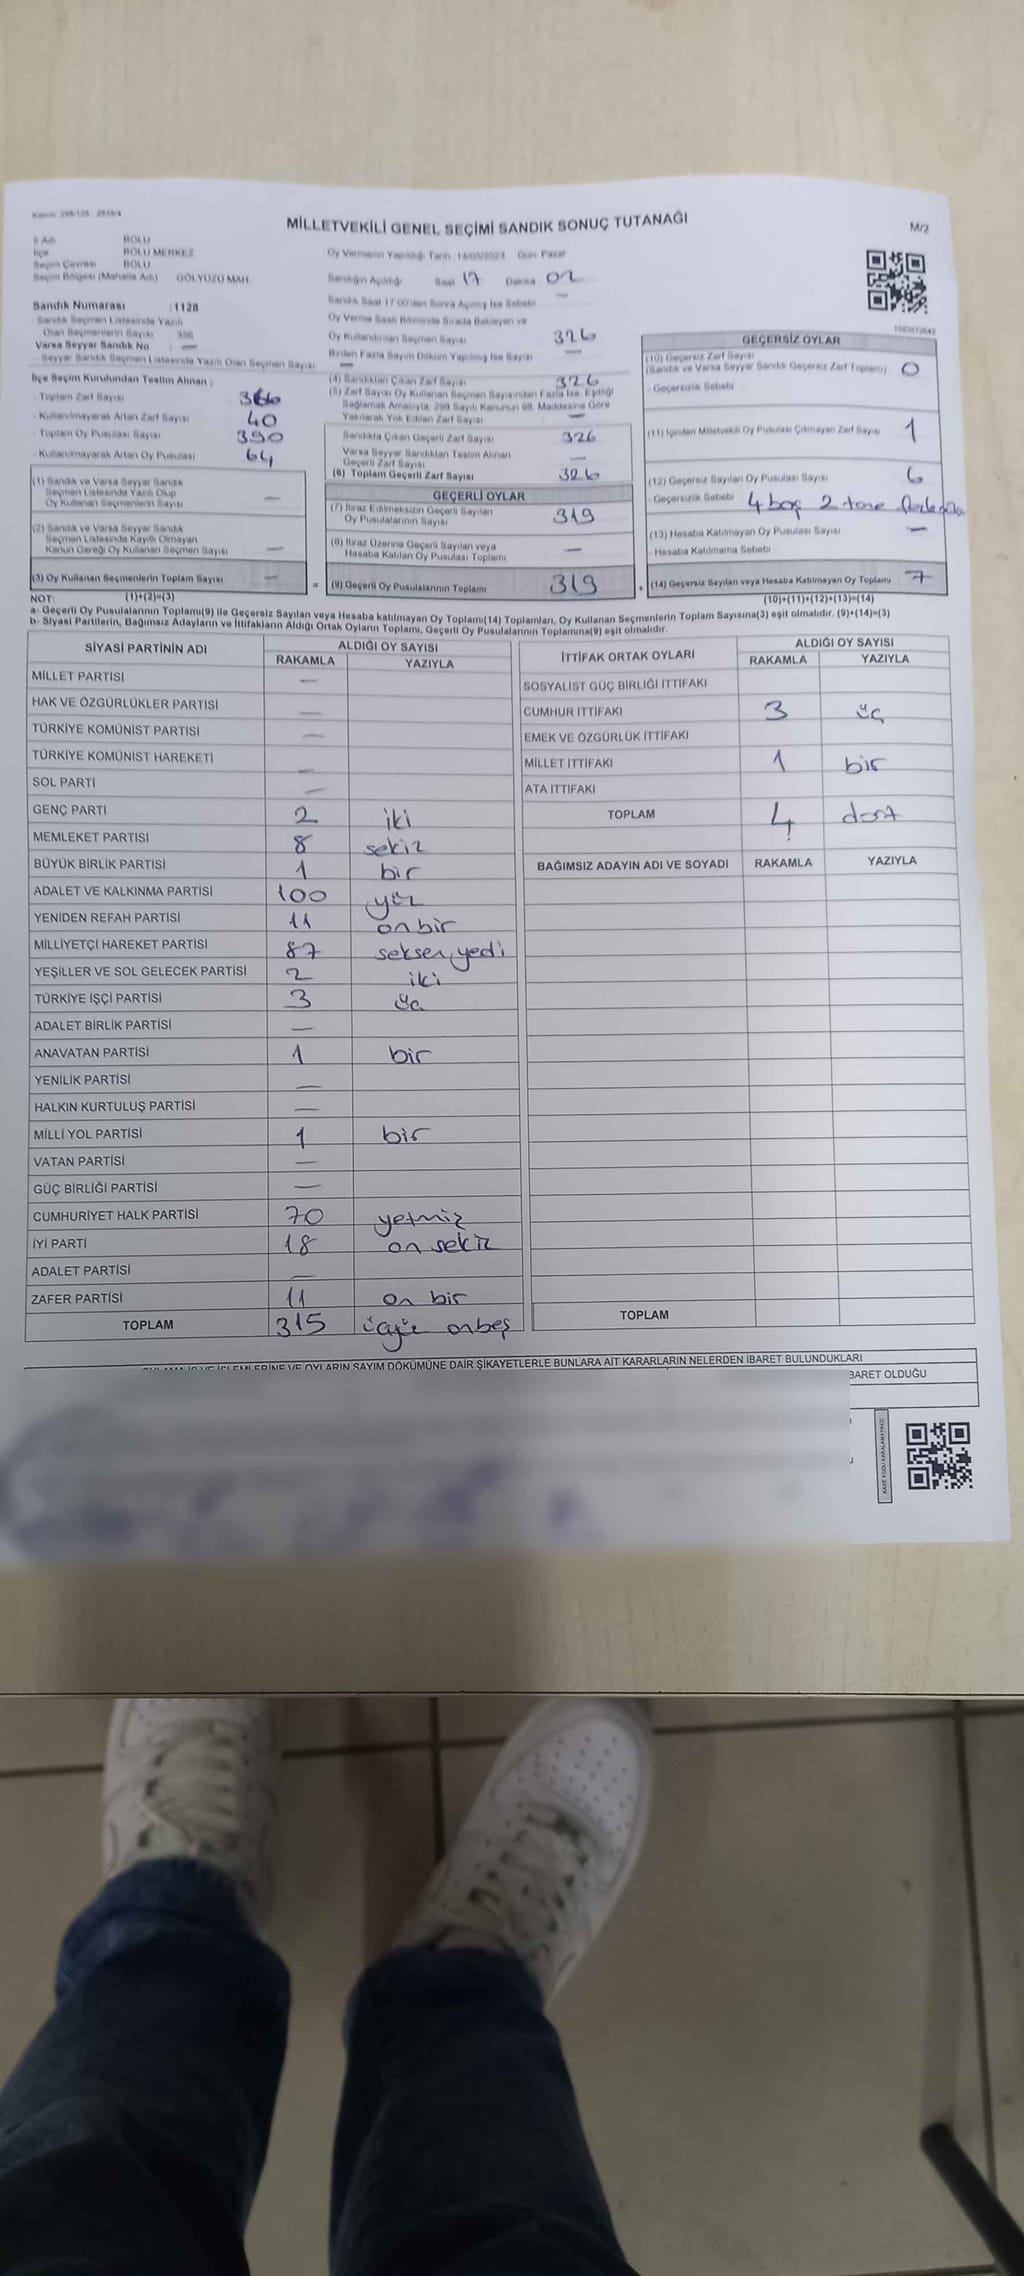 Kanun: 298/105 , 2839/4
MİLLETVEKİLİ GENEL SEÇİMİ SANDIK SONUÇ TUTANAĞI
M/2
İl Adı BOLU
İlçe BOLU MERKEZ
Seçim Çevresi BOLU
Seçim Bölgesi (Mahalle Adı) GÖLYÜZÜ MAH.
Sandık Numarası :1128
- Sandık Seçmen Listesinde Yazılı
Olan Seçmenlerin Sayısı
Varsa Seyyar Sandık No : —
- Seyyar Sandık Seçmen Listesinde Yazılı Olan Seçmen Sayısı: —
İlçe Seçim Kurulundan Teslim Alınan ;
- Toplam Zarf Sayısı 366
- Kullanılmayarak Artan Zarf Sayısı 40
- Toplam Oy Pusulası Sayısı 390
- Kullanılmayarak Artan Oy Pusulası 64
(1) Sandık ve Varsa Seyyar Sandık
Seçmen Listesinde Yazılı Olup
Oy Kullanan Seçmenlerin Sayısı —
(2) Sandık ve Varsa Seyyar Sandık
Seçmen Listesinde Kayıtlı Olmayan
Kanun Gereği Oy Kullanan Seçmen Sayısı —
(3) Oy Kullanan Seçmenlerin Toplam Sayısı —
Oy Vermenin Yapıldığı Tarih :14/05/2023 Gün: Pazar
Sandığın Açıldığı Saat 17 Dakika 02
Sandık Saat 17.00'den Sonra Açılmış İse Sebebi —
Oy Verme Saati Bitiminde Sırada Bekleyen ve
Oy Kullandırılan Seçmen Sayısı 326
Birden Fazla Sayım Döküm Yapılmış İse Sayısı —
(4) Sandıktan Çıkan Zarf Sayısı 326
(5) Zarf Sayısı Oy Kullanan Seçmen Sayısından Fazla İse, Eşitliği
Sağlamak Amacıyla, 298 Sayılı Kanunun 98. Maddesine Göre
Yakılarak Yok Edilen Zarf Sayısı —
Sandıkta Çıkan Geçerli Zarf Sayısı 326
Varsa Seyyar Sandıktan Teslim Alınan
Geçerli Zarf Sayısı —
(6) Toplam Geçerli Zarf Sayısı 326
GEÇERLİ OYLAR
(7) İtiraz Edilmeksizin Geçerli Sayılan
Oy Pusulalarının Sayısı 319
(8) İtiraz Üzerine Geçerli Sayılan veya
Hesaba Katılan Oy Pusulası Toplamı —
= (9) Geçerli Oy Pusulalarının Toplamı 319
GEÇERSİZ OYLAR
(10) Geçersiz Zarf Sayısı
(Sandık ve Varsa Seyyar Sandık Geçersiz Zarf Toplamı) 0
- Geçersizlik Sebebi
(11) İçinden Milletvekili Oy Pusulası Çıkmayan Zarf Sayısı 1
(12) Geçersiz Sayılan Oy Pusulası Sayısı 6
- Geçersizlik Sebebi 4 boş 2 tane
(13) Hesaba Katılmayan Oy Pusulası Sayısı —
- Hesaba Katılmama Sebebi
+ (14) Geçersiz Sayılan veya Hesaba Katılmayan Oy Toplamı 7
NOT: (1)+(2)=(3) (10)+(11)+(12)+(13)=(14)
a- Geçerli Oy Pusulalarının Toplamı(9) ile Geçersiz Sayılan veya Hesaba katılmayan Oy Toplamı(14) Toplamları, Oy Kullanan Seçmenlerin Toplam Sayısına(3) eşit olmalıdır. (9)+(14)=(3)
b- Siyasi Partilerin, Bağımsız Adayların ve İttifakların Aldığı Ortak Oyların Toplamı, Geçerli Oy Pusulalarının Toplamına(9) eşit olmalıdır.
SİYASİ PARTİNİN ADI ALDIĞI OY SAYISI
RAKAMLA YAZIYLA
MİLLET PARTİSİ —
HAK VE ÖZGÜRLÜKLER PARTİSİ —
TÜRKİYE KOMÜNİST PARTİSİ —
TÜRKİYE KOMÜNİST HAREKETİ —
SOL PARTİ —
GENÇ PARTİ 2 iki
MEMLEKET PARTİSİ 8 sekiz
BÜYÜK BİRLİK PARTİSİ 1 bir
ADALET VE KALKINMA PARTİSİ 100 yüz
YENİDEN REFAH PARTİSİ 11 on bir
MİLLİYETÇİ HAREKET PARTİSİ 87 seksen yedi
YEŞİLLER VE SOL GELECEK PARTİSİ 2 iki
TÜRKİYE İŞÇİ PARTİSİ 3 üç
ADALET BİRLİK PARTİSİ —
ANAVATAN PARTİSİ 1 bir
YENİLİK PARTİSİ —
HALKIN KURTULUŞ PARTİSİ —
MİLLİ YOL PARTİSİ 1 bir
VATAN PARTİSİ —
GÜÇ BİRLİĞİ PARTİSİ —
CUMHURİYET HALK PARTİSİ 70 yetmiş
İYİ PARTİ 18 on sekiz
ADALET PARTİSİ —
ZAFER PARTİSİ 11 on bir
TOPLAM 315 üçyüz onbeş
İTTİFAK ORTAK OYLARI ALDIĞI OY SAYISI
RAKAMLA YAZIYLA
SOSYALİST GÜÇ BİRLİĞİ İTTİFAKI
CUMHUR İTTİFAKI 3 üç
EMEK VE ÖZGÜRLÜK İTTİFAKI
MİLLET İTTİFAKI 1 bir
ATA İTTİFAKI
TOPLAM 4 dört
BAĞIMSIZ ADAYIN ADI VE SOYADI RAKAMLA YAZIYLA
TOPLAM
İŞLEMLERİNE VE OYLARIN SAYIM DÖKÜMÜNE DAİR ŞİKAYETLERLE BUNLARA AİT KARARLARIN NELERDEN İBARET BULUNDUKLARI
BARET OLDUĞU
KARE KODU KARALAMAYINIZ!